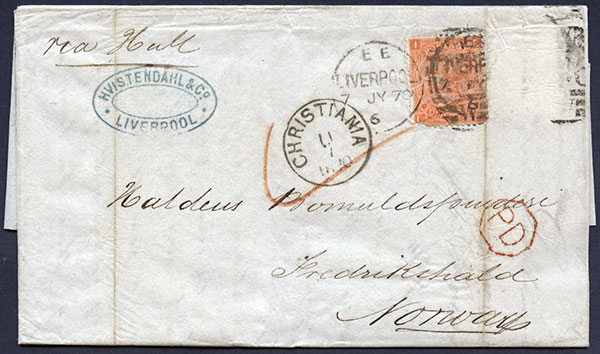 via Hull
HVISTENDAHL & Co
LIVERPOOL
E E
LIVERPOOL
7 JY 70
6
CHRISTIANIA
11
7
1870
Haldens Bomuldspinderi
PD
Fredrikshald
Norway